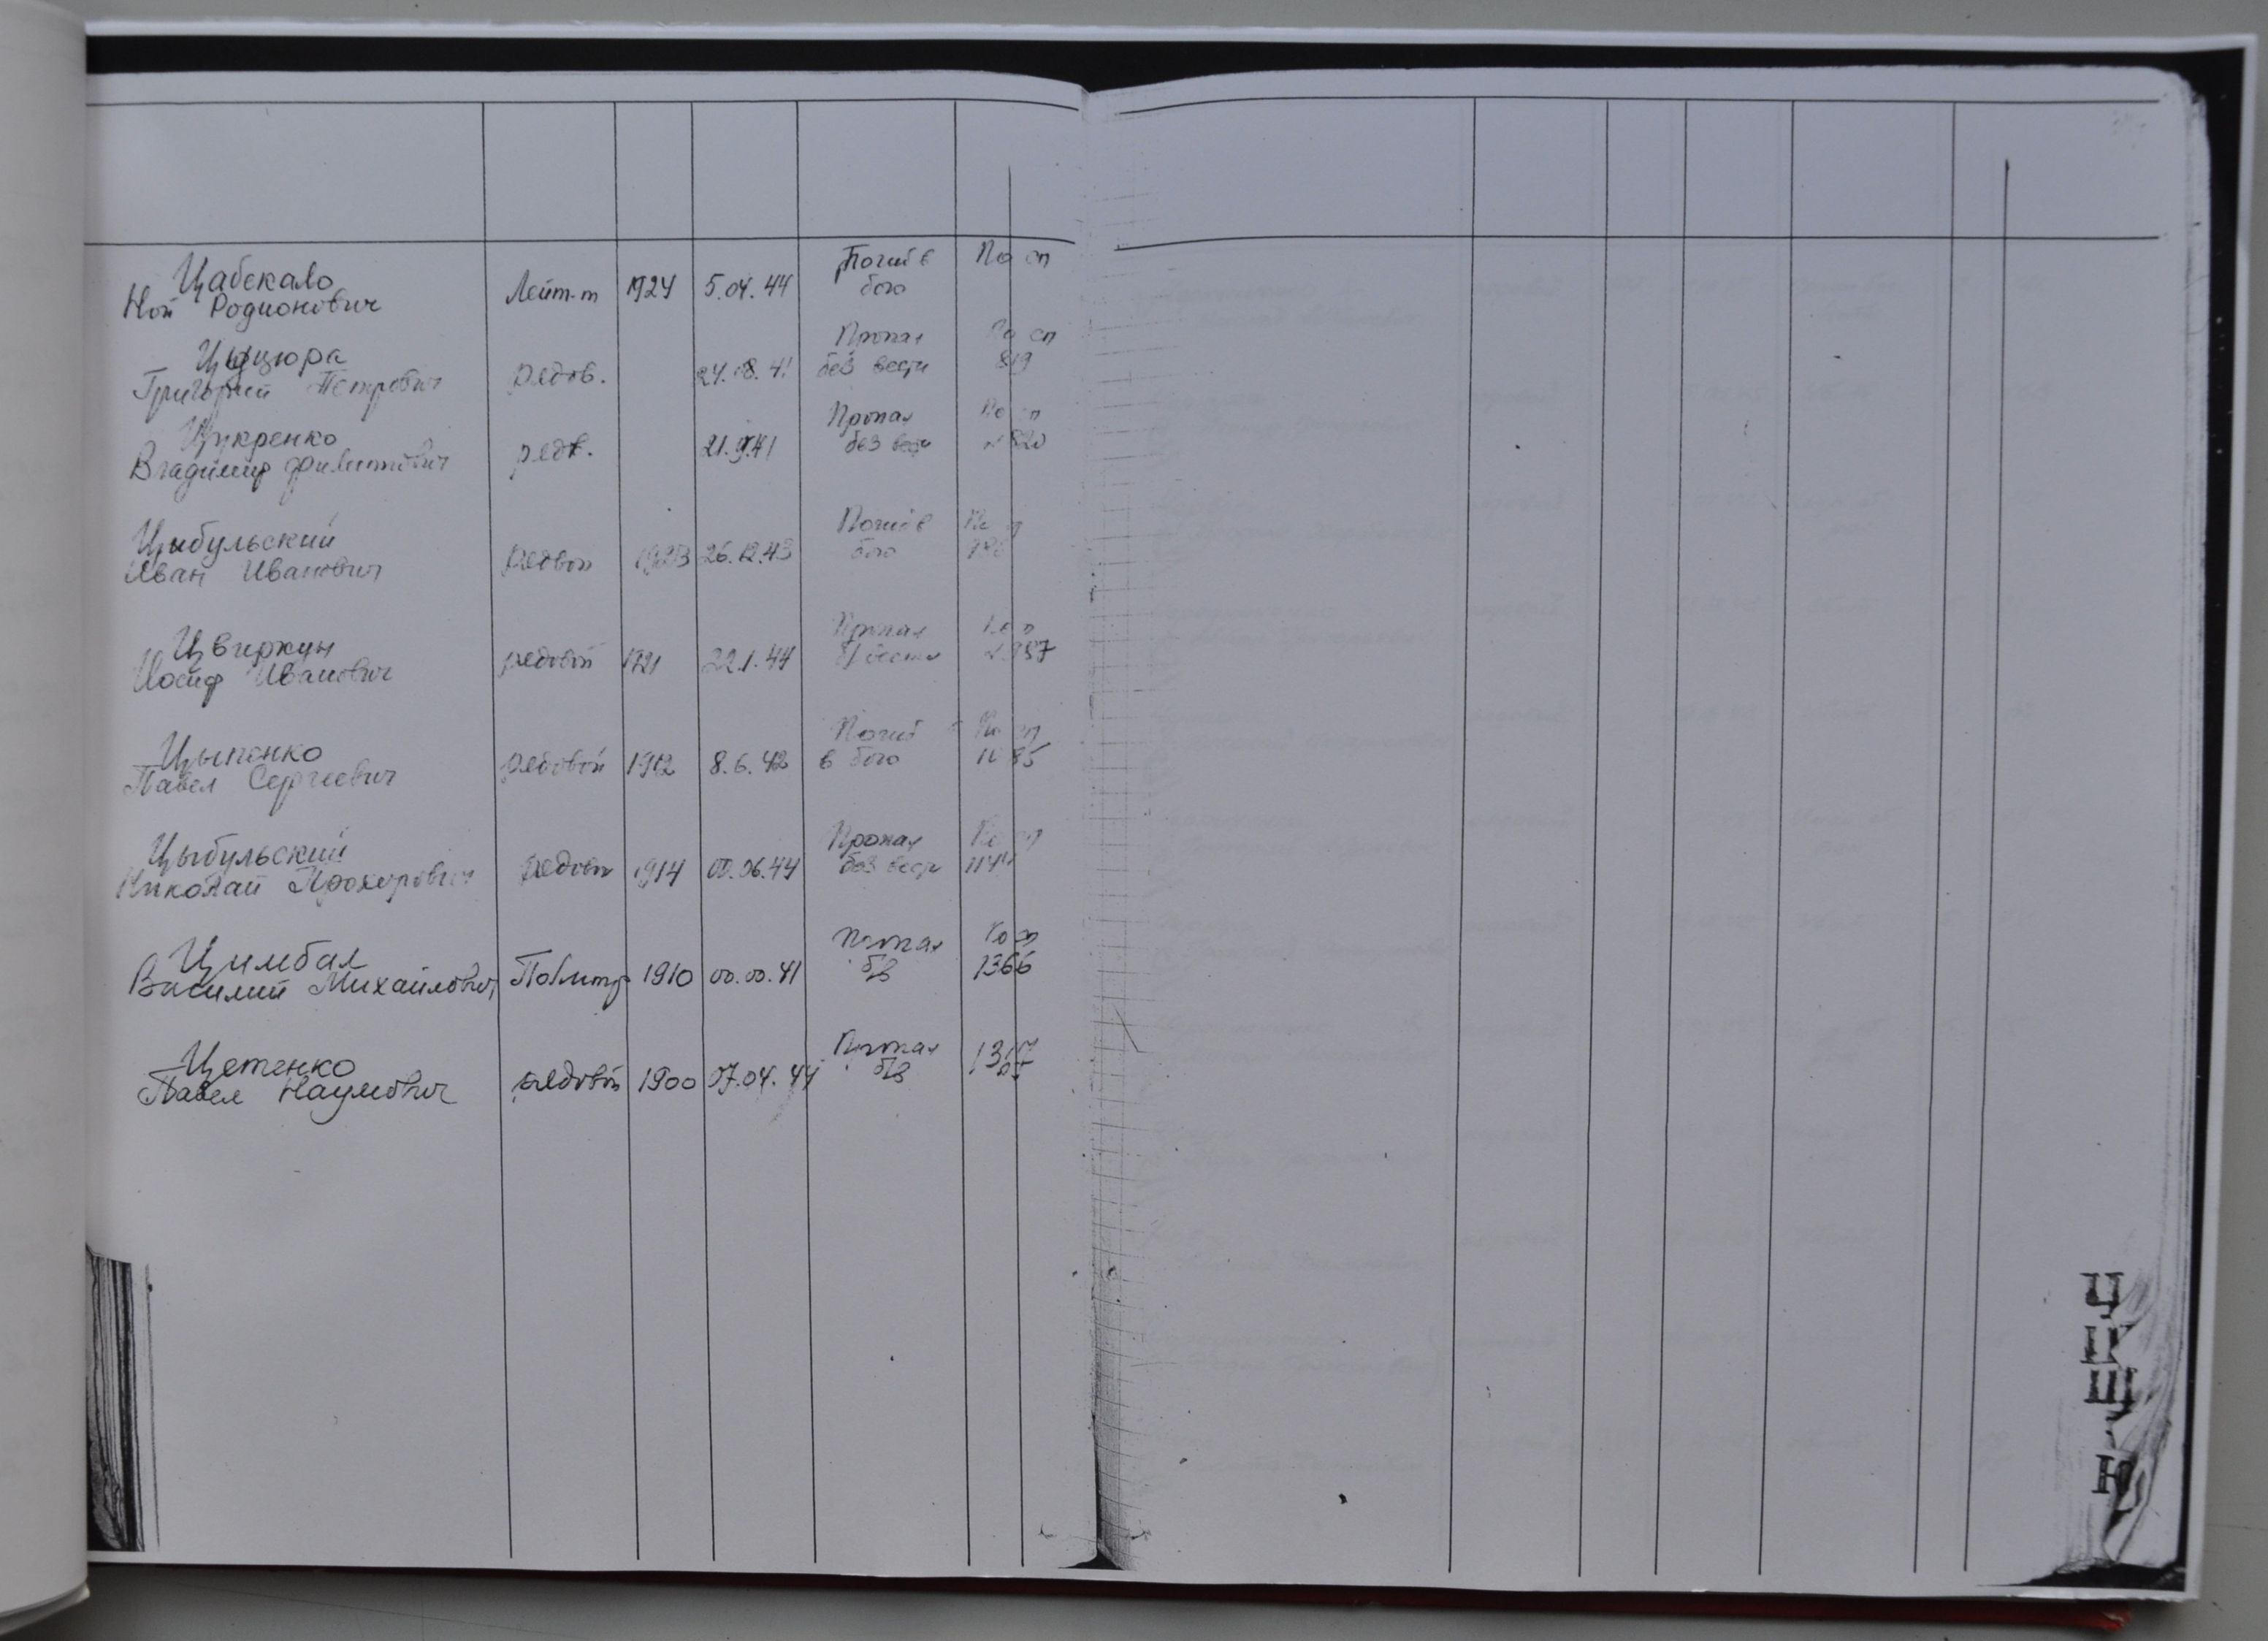 Цабекало Погиб в По сп
Ной Родионович Лейт-т 1924 5.04.44 бою
Цыцюра Пропал По сп
Григорий Петрович рядов. 24.08.41 без вести 819
Цукренко Пропал По сп
Владимир Филиппович ряд. 21.9.41 без вести 820
Цыбульский Погиб в По
Иван Иванович рядовой 1923 26.12.43 бою
Цвиркун Пропал
Иосиф Иванович рядовой 1921 22.1.44 б/вести 987
Цыпенко Погиб По сп
Павел Сергеевич рядовой 1912 8.6.42 в бою
Цыбульский Пропал По сп
Николай Прохорович рядовой 1914 00.06.44 без вести
Цимбал Пропал По сп
Василий Михайлович Политр 1910 00.00.41 б/в 1366
Цетенко Пропал
Павел Наумович рядовой 1900 07.04.44 б/в
Ц
Щ
Ю